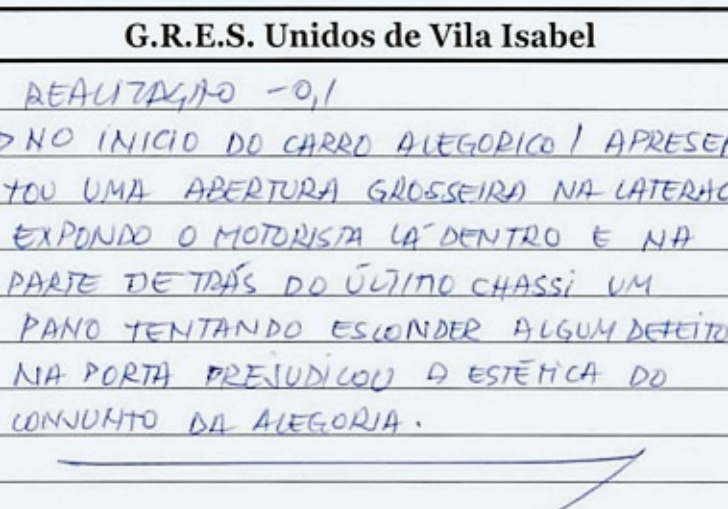 G.R.E.S. Unidos de Vila Isabel
REALIZAÇÃO -0,1
> NO INICIO DO CARRO ALEGORICO 1 APRESEN
TOU UMA ABERTURA GROSSEIRA NA LATERAL
EXPONDO O MOTORISTA LÁ DENTRO E NA
PARTE DE TRÁS DO ÚLTIMO CHASSI UM
PANO TENTANDO ESCONDER ALGUM DEFEITO
NA PORTA PREJUDICOU A ESTÉTICA DO
CONJUNTO DA ALEGORIA.